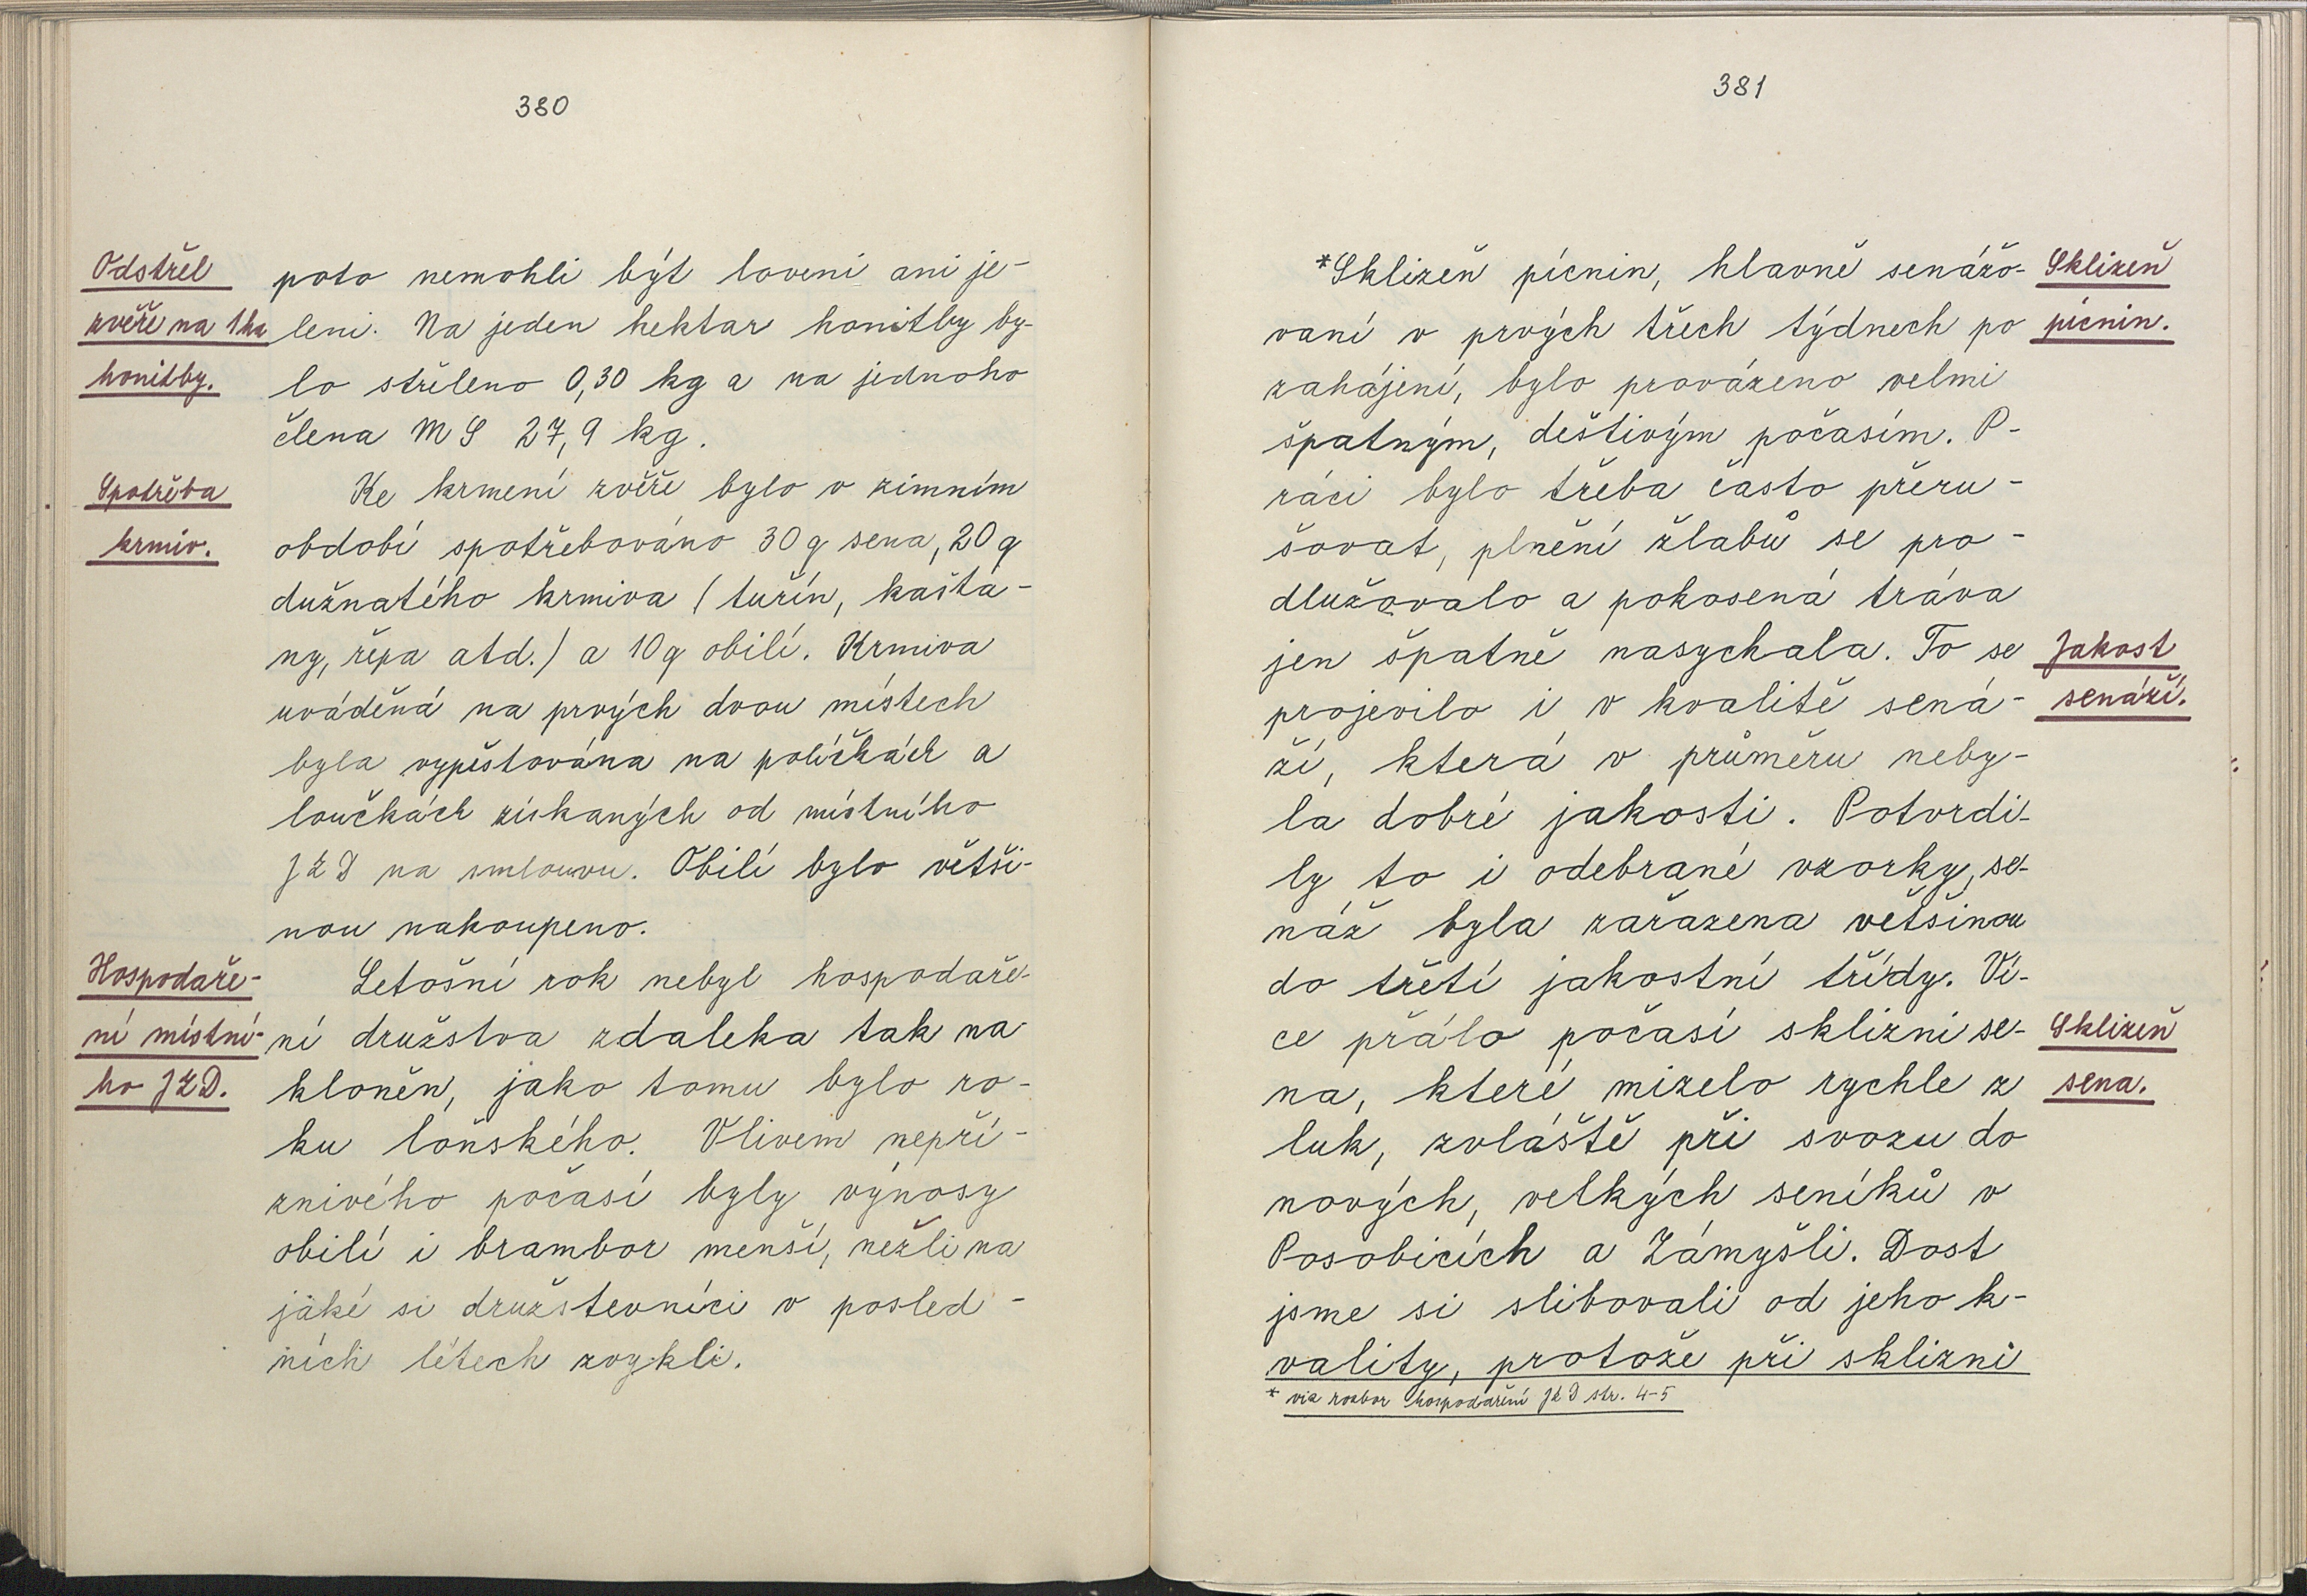 380
Odstřel
zvěře na 1 ha
honitby.
poto nemohli být loveni ani je-
leni. Na jeden hektar honitby by-
lo střeleno 0,30 kg a na jednoho
člena MS 27,9 kg.
Spotřeba
krmiv.
Ke krmení zvěře bylo v zimním
období spotřebováno 30 q sena, 20 q
dužnatého krmiva (tuřín, kašta-
ny, řepa atd.) a 10 q obilí. Krmiva
uváděná na prvých dvou místech
byla vypěstována na políčkách a
loučkách získaných od místního
JZD na smlouvu. Obilí bylo větši-
nou nakoupeno.
Hospodaře-
ní místní-
ho JZD.
Letošní rok nebyl hospodaře-
ní družstva zdaleka tak na
kloněn, jako tomu bylo ro-
ku loňského. Vlivem nepří-
znivého počasí byly výnosy
obilí i brambor menší, nežli na
jaké si družstevníci v posled-
ních létech zvykli.
381
*Sklizeň pícnin, hlavně senážo-
vaní v prvých třech týdnech po
zahájení, bylo provázeno velmi
špatným, deštivým počasím. P-
ráci bylo třeba často přeru-
šovat, plnění žlabů se pro-
dlužovalo a pokosená tráva
jen špatně nasychala. To se
projevilo i v kvalitě sená-
ží, která v průměru neby-
la dobré jakosti. Potvrdi-
ly to i odebrané vzorky, se-
náž byla zařazena většinou
do třetí jakostní třídy. Ví-
ce přálo počasí sklizni se-
na, které mizelo rychle z
luk, zvláště při svozu do
nových, velkých seníků v
Posobicích a Zámyšli. Dost
jsme si slibovali od jeho k-
vality, protože při sklizni
* viz rozbor hospodaření JZD str. 4-5
Sklizeň
pícnin.
Jakost
senáží.
Sklizeň
sena.